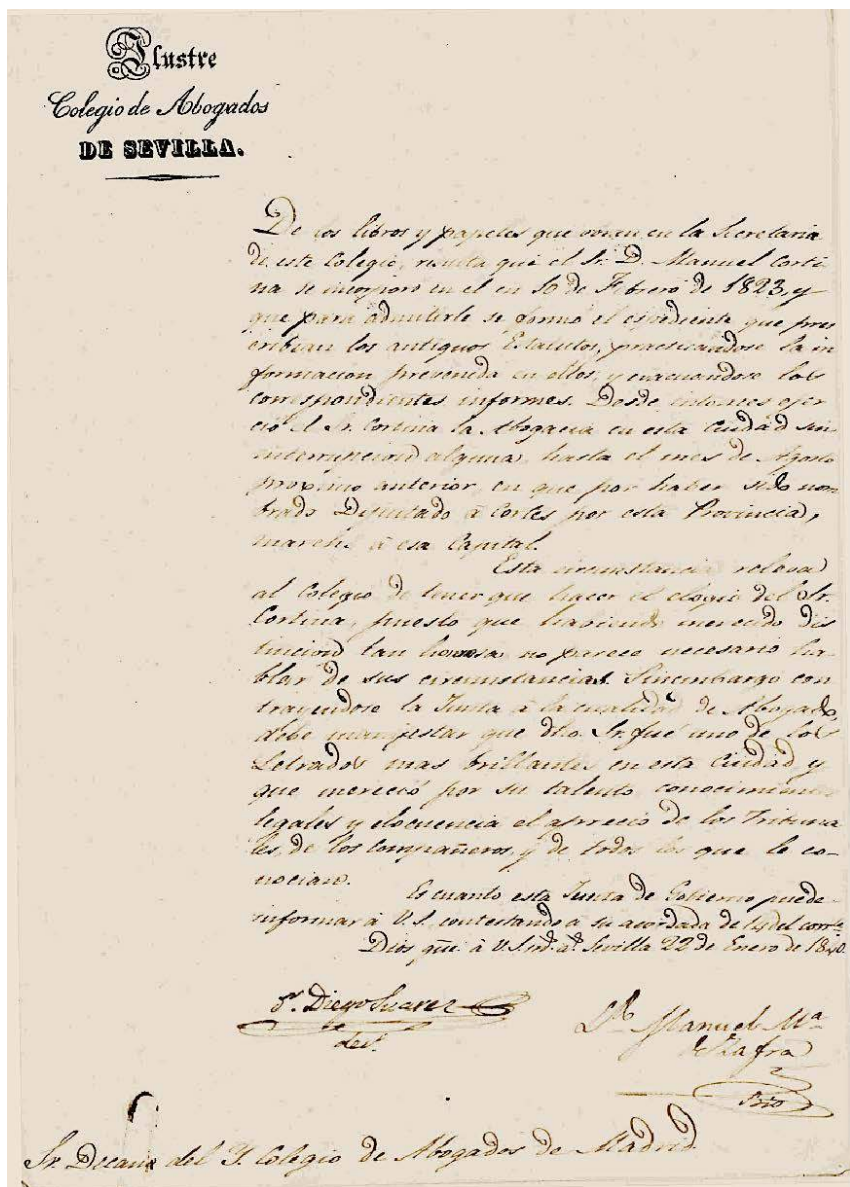 Ilustre
Colegio de Abogados
DE SEVILLA.
De los libros y papeles que obran en la Secretaria
de este Colegio, resulta que el Sr. D. Manuel Corti-
na se incorporó en el en 10 de Febrero de 1823, y
que para admitirle se formó el espediente que pres
cribian los antiguos Estatutos, practicandose la in
formacion prevenida en ellos, y evacuandose los
correspondientes informes. Desde entonces ejer
ció el Sr. Cortina la Abogacia en esta Ciudad sin
interrupcion alguna, hasta el mes de Agosto
proximo anterior, en que por haber sido nom
brado Diputado á Cortes por esta Provincia,
marchó á esa Capital.
Esta circunstancia releva
al Colegio de tener que hacer el elogio del Sr.
Cortina, puesto que haviendo merecido dis
tincion tan honrosa no parece necesario ha-
blar de sus circunstancias. Sinembargo con
trayendose la Junta á la cualidad de Abogado,
debe manifestar que dho. Sr. fué uno de los
Letrados mas brillantes en esta Ciudad y
que mereció por su talento conocimientos
legales y elocuencia el aprecio de los Tribuna
les, de los Compañeros, y de todos los que le co-
nocian.
Es cuanto esta Junta de Gobierno puede
informar á V.S. contestando a su acordada de del corrte.
Dios gue. á V.S. ms. as. Sevilla 22 de Enero de 1840.
Diego Suarez
Manuel Ma.
de Zafra
Srio
Sr. Decano del Y. Colegio de Abogados de Madrid